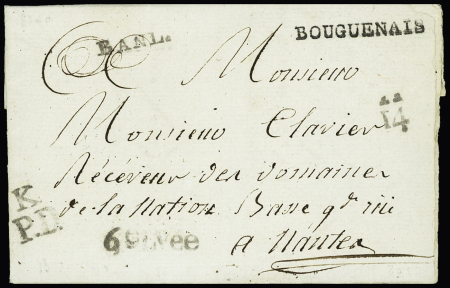 BANL.
BOUGUENAIS
Monsieur
Monsieur Clavier
14
Récéveur des domaines
K
P.D
de la Nation Basse
6 e Levée
a Nantes